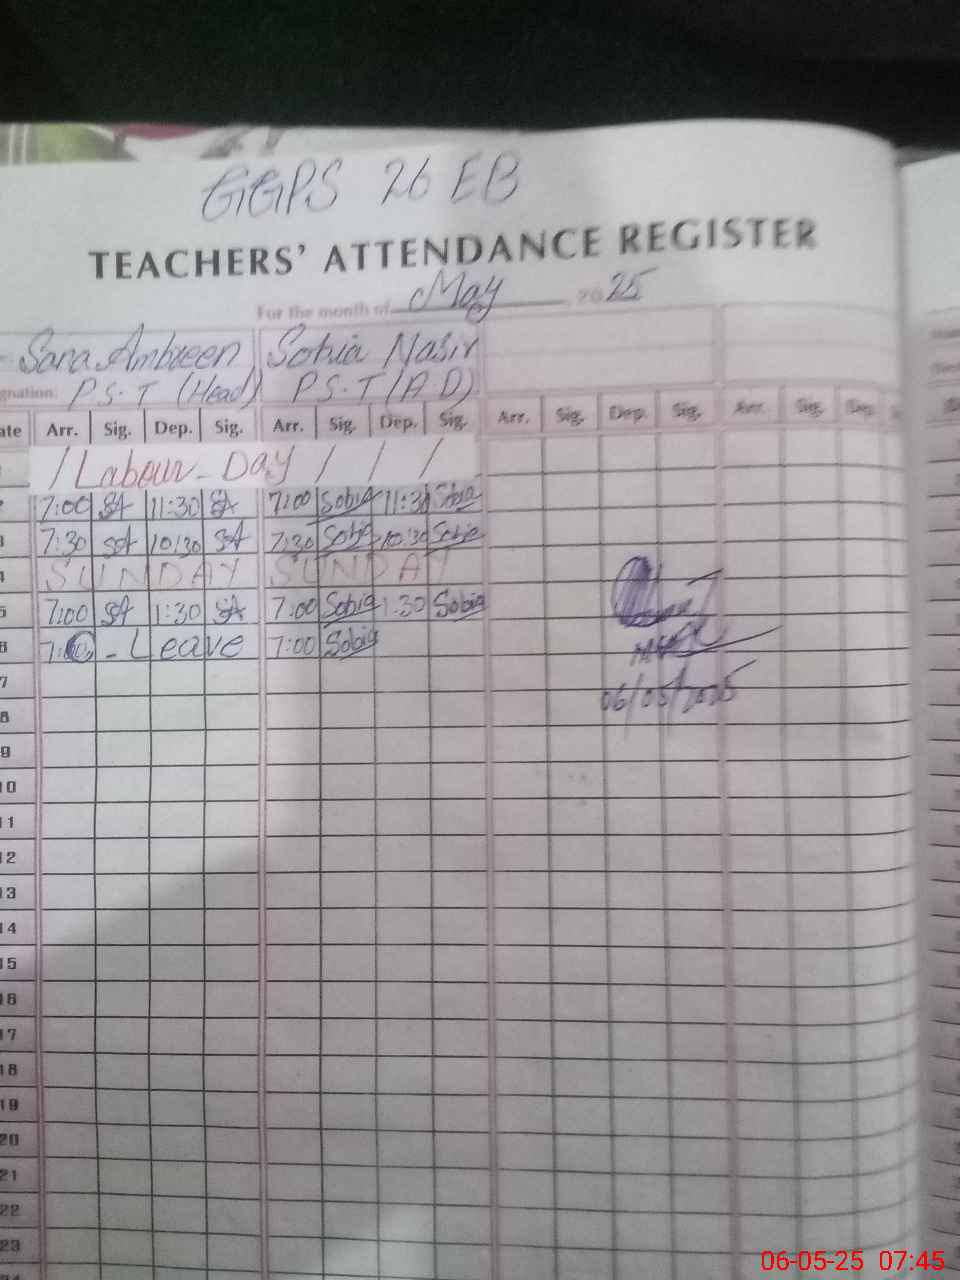 GGPS 26 EB
TEACHERS' ATTENDANCE REGISTER
For the month of May, 2025
Sara Ambreen Sobia Nasir
gnation: P.S.T (Head) P.S.T (A.D)
ate Arr. Sig. Dep. Sig. Arr. Sig. Dep. Sig. Arr. Sig. Dep. Sig. Arr. Sig. Dep.
/ Labour-Day / / /
7:00 SA 11:30 SA 7:00 Sobia 11:30 Sobia
7:30 SA 10:30 SA 7:30 Sobia 10:30 Sobia
SUNDAY SUNDAY
5 7:00 SA 1:30 SA 7:00 Sobia 1:30 Sobia
6 - Leave 7:00 Sobia
06/05/2025
7
8
9
10
11
12
13
14
15
16
17
18
19
20
21
22
23
06-05-25 07:45